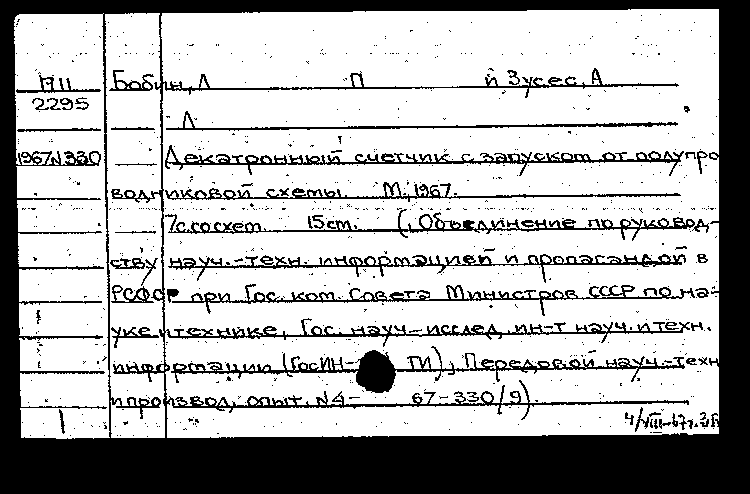 П11 Бабин, Л П й Зусес, А
2295 Л
1967N330 Декатронный счетчик с запуском от полупро
водниковой схемы. М., 1967.
7с.сосхем 15 см. (Объединение по руковод-
ству науч.-техн. информацией и пропагандой в
РСФСР при Гос. ком. Совета Министров СССР по на-
уке и технике, Гос. науч-исслед. ин-т науч. и техн.
информации (ГосИН- ТИ), Передовой науч.-техн
и производ. опыт. N4- 67-330/9).
4/VIII-67г.